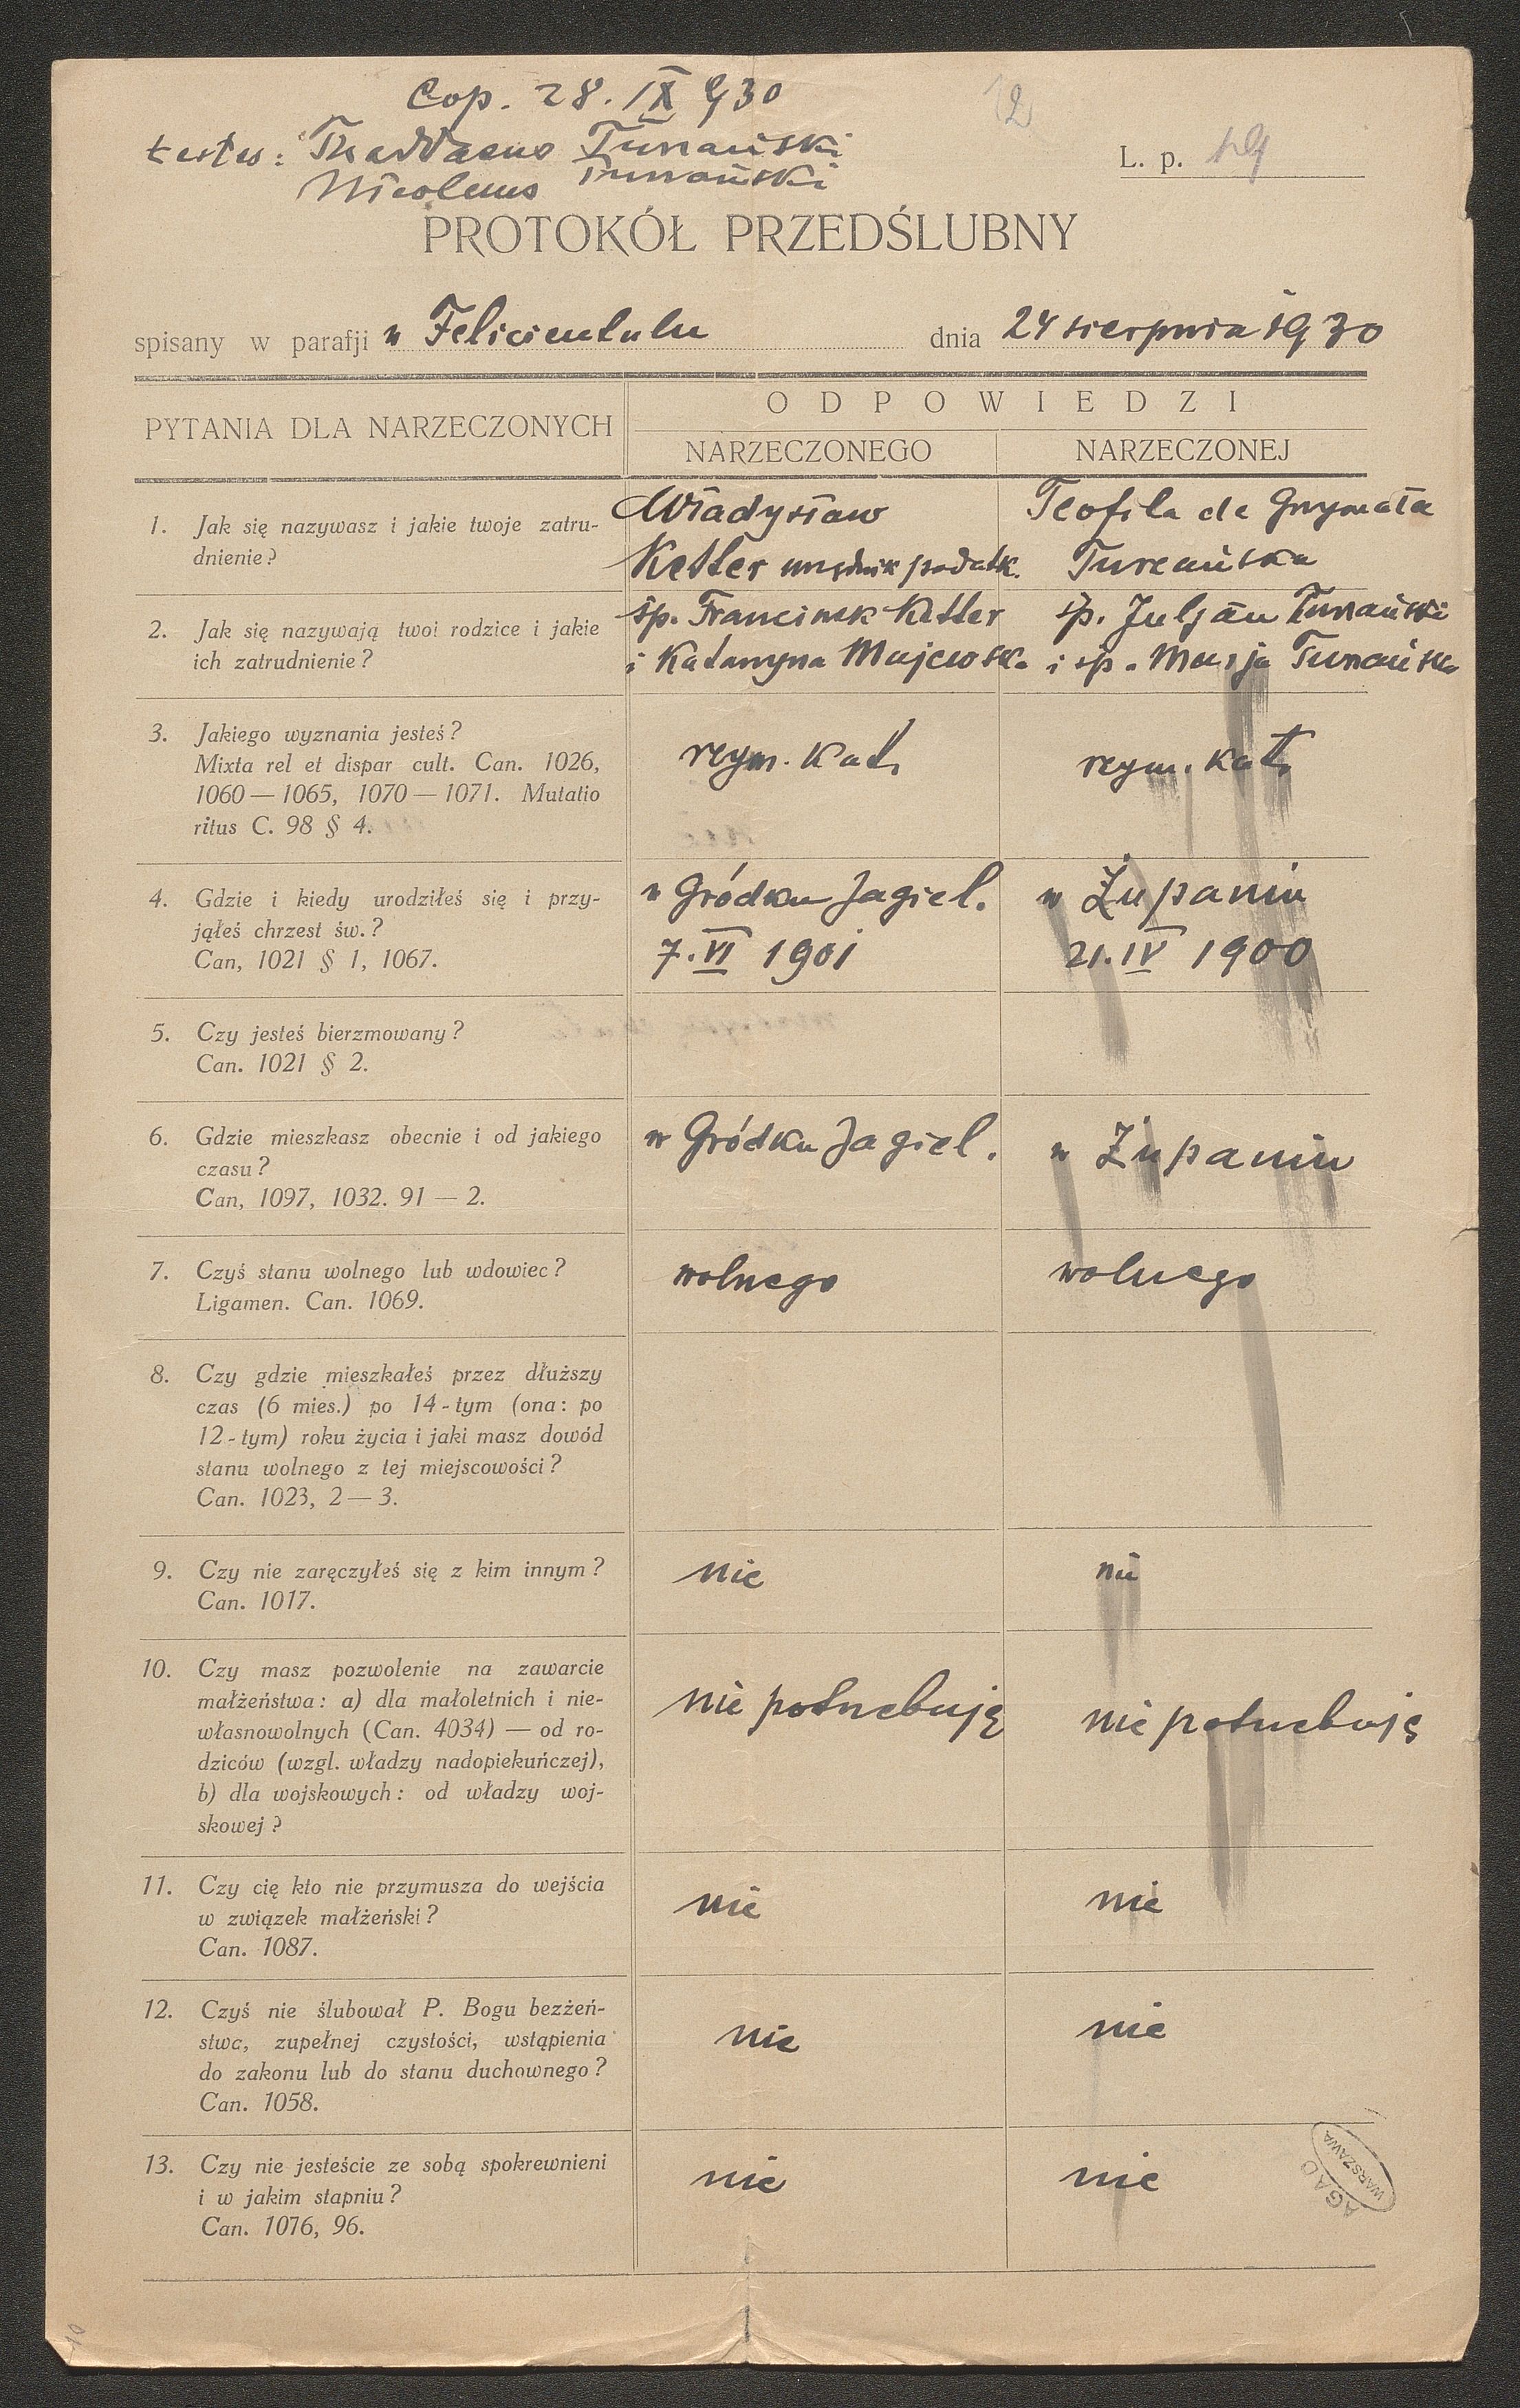 Cop. 28. IX 930
12
testes: Thaddaeus Turzański
Nicolaus Turzański
L. p. 19
PROTOKÓŁ PRZEDŚLUBNY
spisany w parafji w Felicientalu dnia 24 sierpnia 1930
PYTANIA DLA NARZECZONYCH
ODPOWIEDZI
NARZECZONEGO NARZECZONEJ
1. Jak się nazywasz i jakie twoje zatru-
dnienie?
Władysław
Ketler urzędnik podatk.
Teofila de Grzymała
Turzańska
2. Jak się nazywają twoi rodzice i jakie
ich zatrudnienie?
śp. Franciszek Ketler
i Katarzyna Majewska
śp. Juljan Turzański
i śp. Marja Turzańska
3. Jakiego wyznania jesteś?
Mixta rel et dispar cult. Can. 1026,
1060 — 1065, 1070 — 1071. Mutatio
ritus C. 98 § 4.
rzym. kat.
rzym. kat.
4. Gdzie i kiedy urodziłeś się i przy-
jąłeś chrzest św.?
Can, 1021 § 1, 1067.
w Gródku Jagiel.
7. VI 1901
w Żupaniu
21. IV 1900
5. Czy jesteś bierzmowany?
Can. 1021 § 2.
6. Gdzie mieszkasz obecnie i od jakiego
czasu?
Can, 1097, 1032. 91 — 2.
w Gródku Jagiel.
w Żupaniu
7. Czyś stanu wolnego lub wdowiec?
Ligamen. Can. 1069.
wolnego
wolnego
8. Czy gdzie mieszkałeś przez dłuższy
czas (6 mies.) po 14-tym (ona: po
12-tym) roku życia i jaki masz dowód
stanu wolnego z tej miejscowości?
Can. 1023, 2 — 3.
9. Czy nie zaręczyłeś się z kim innym?
Can. 1017.
nie
nie
10. Czy masz pozwolenie na zawarcie
małżeństwa: a) dla małoletnich i nie-
własnowolnych (Can. 4034) — od ro-
dziców (wzgl. władzy nadopiekuńczej),
b) dla wojskowych: od władzy woj-
skowej?
nie potrzebuję
nie potrzebuję
11. Czy cię kto nie przymusza do wejścia
w związek małżeński?
Can. 1087.
nie
nie
12. Czyś nie ślubował P. Bogu bezżeń-
stwc, zupełnej czystości, wstąpienia
do zakonu lub do stanu duchownego?
Can. 1058.
nie
nie
13. Czy nie jesteście ze sobą spokrewnieni
i w jakim stapniu?
Can. 1076, 96.
nie
nie
AGAD
WARSZAWA